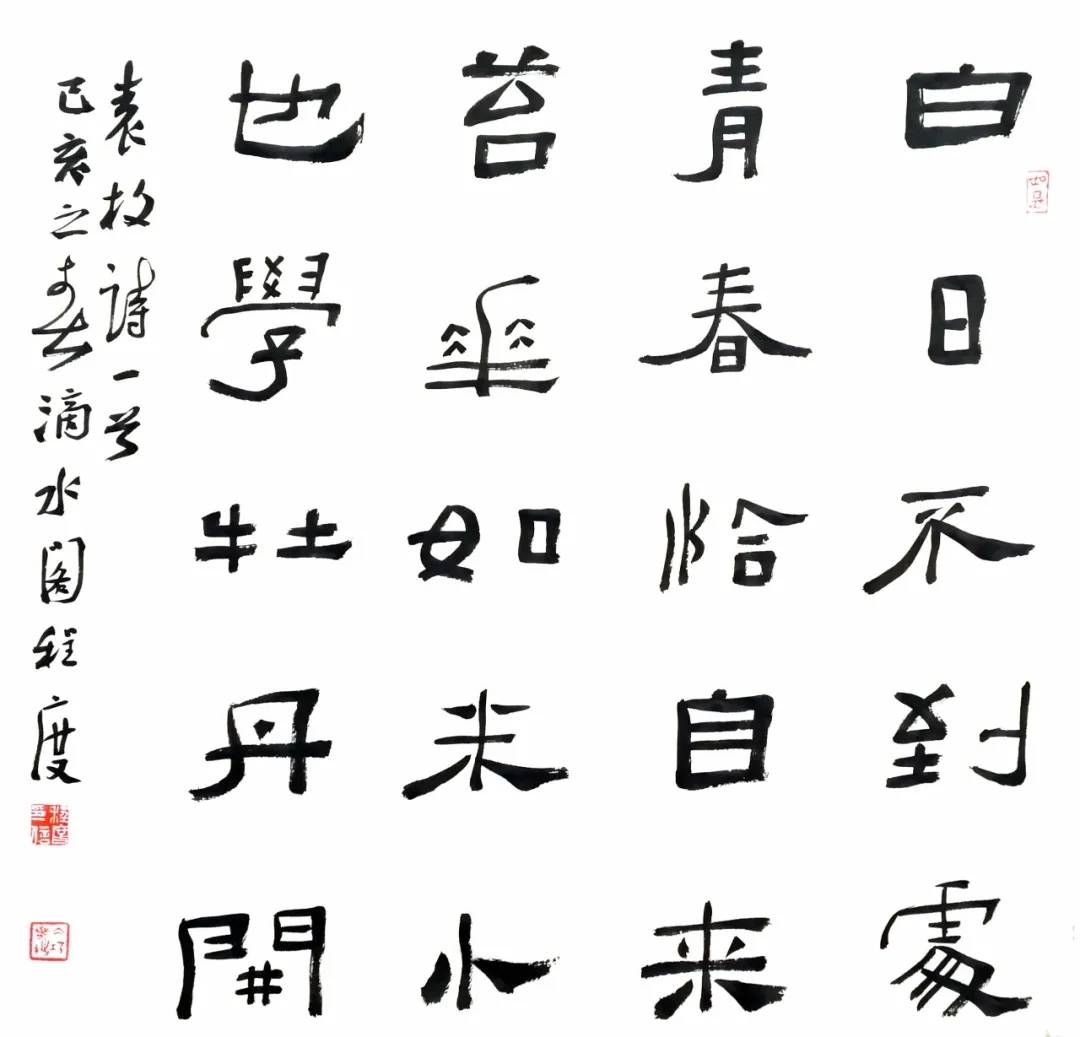 白日不到處
如是
青春恰自來
苔華如米小
也學牡丹開
袁枚詩一首
己亥之春滴水閣程度